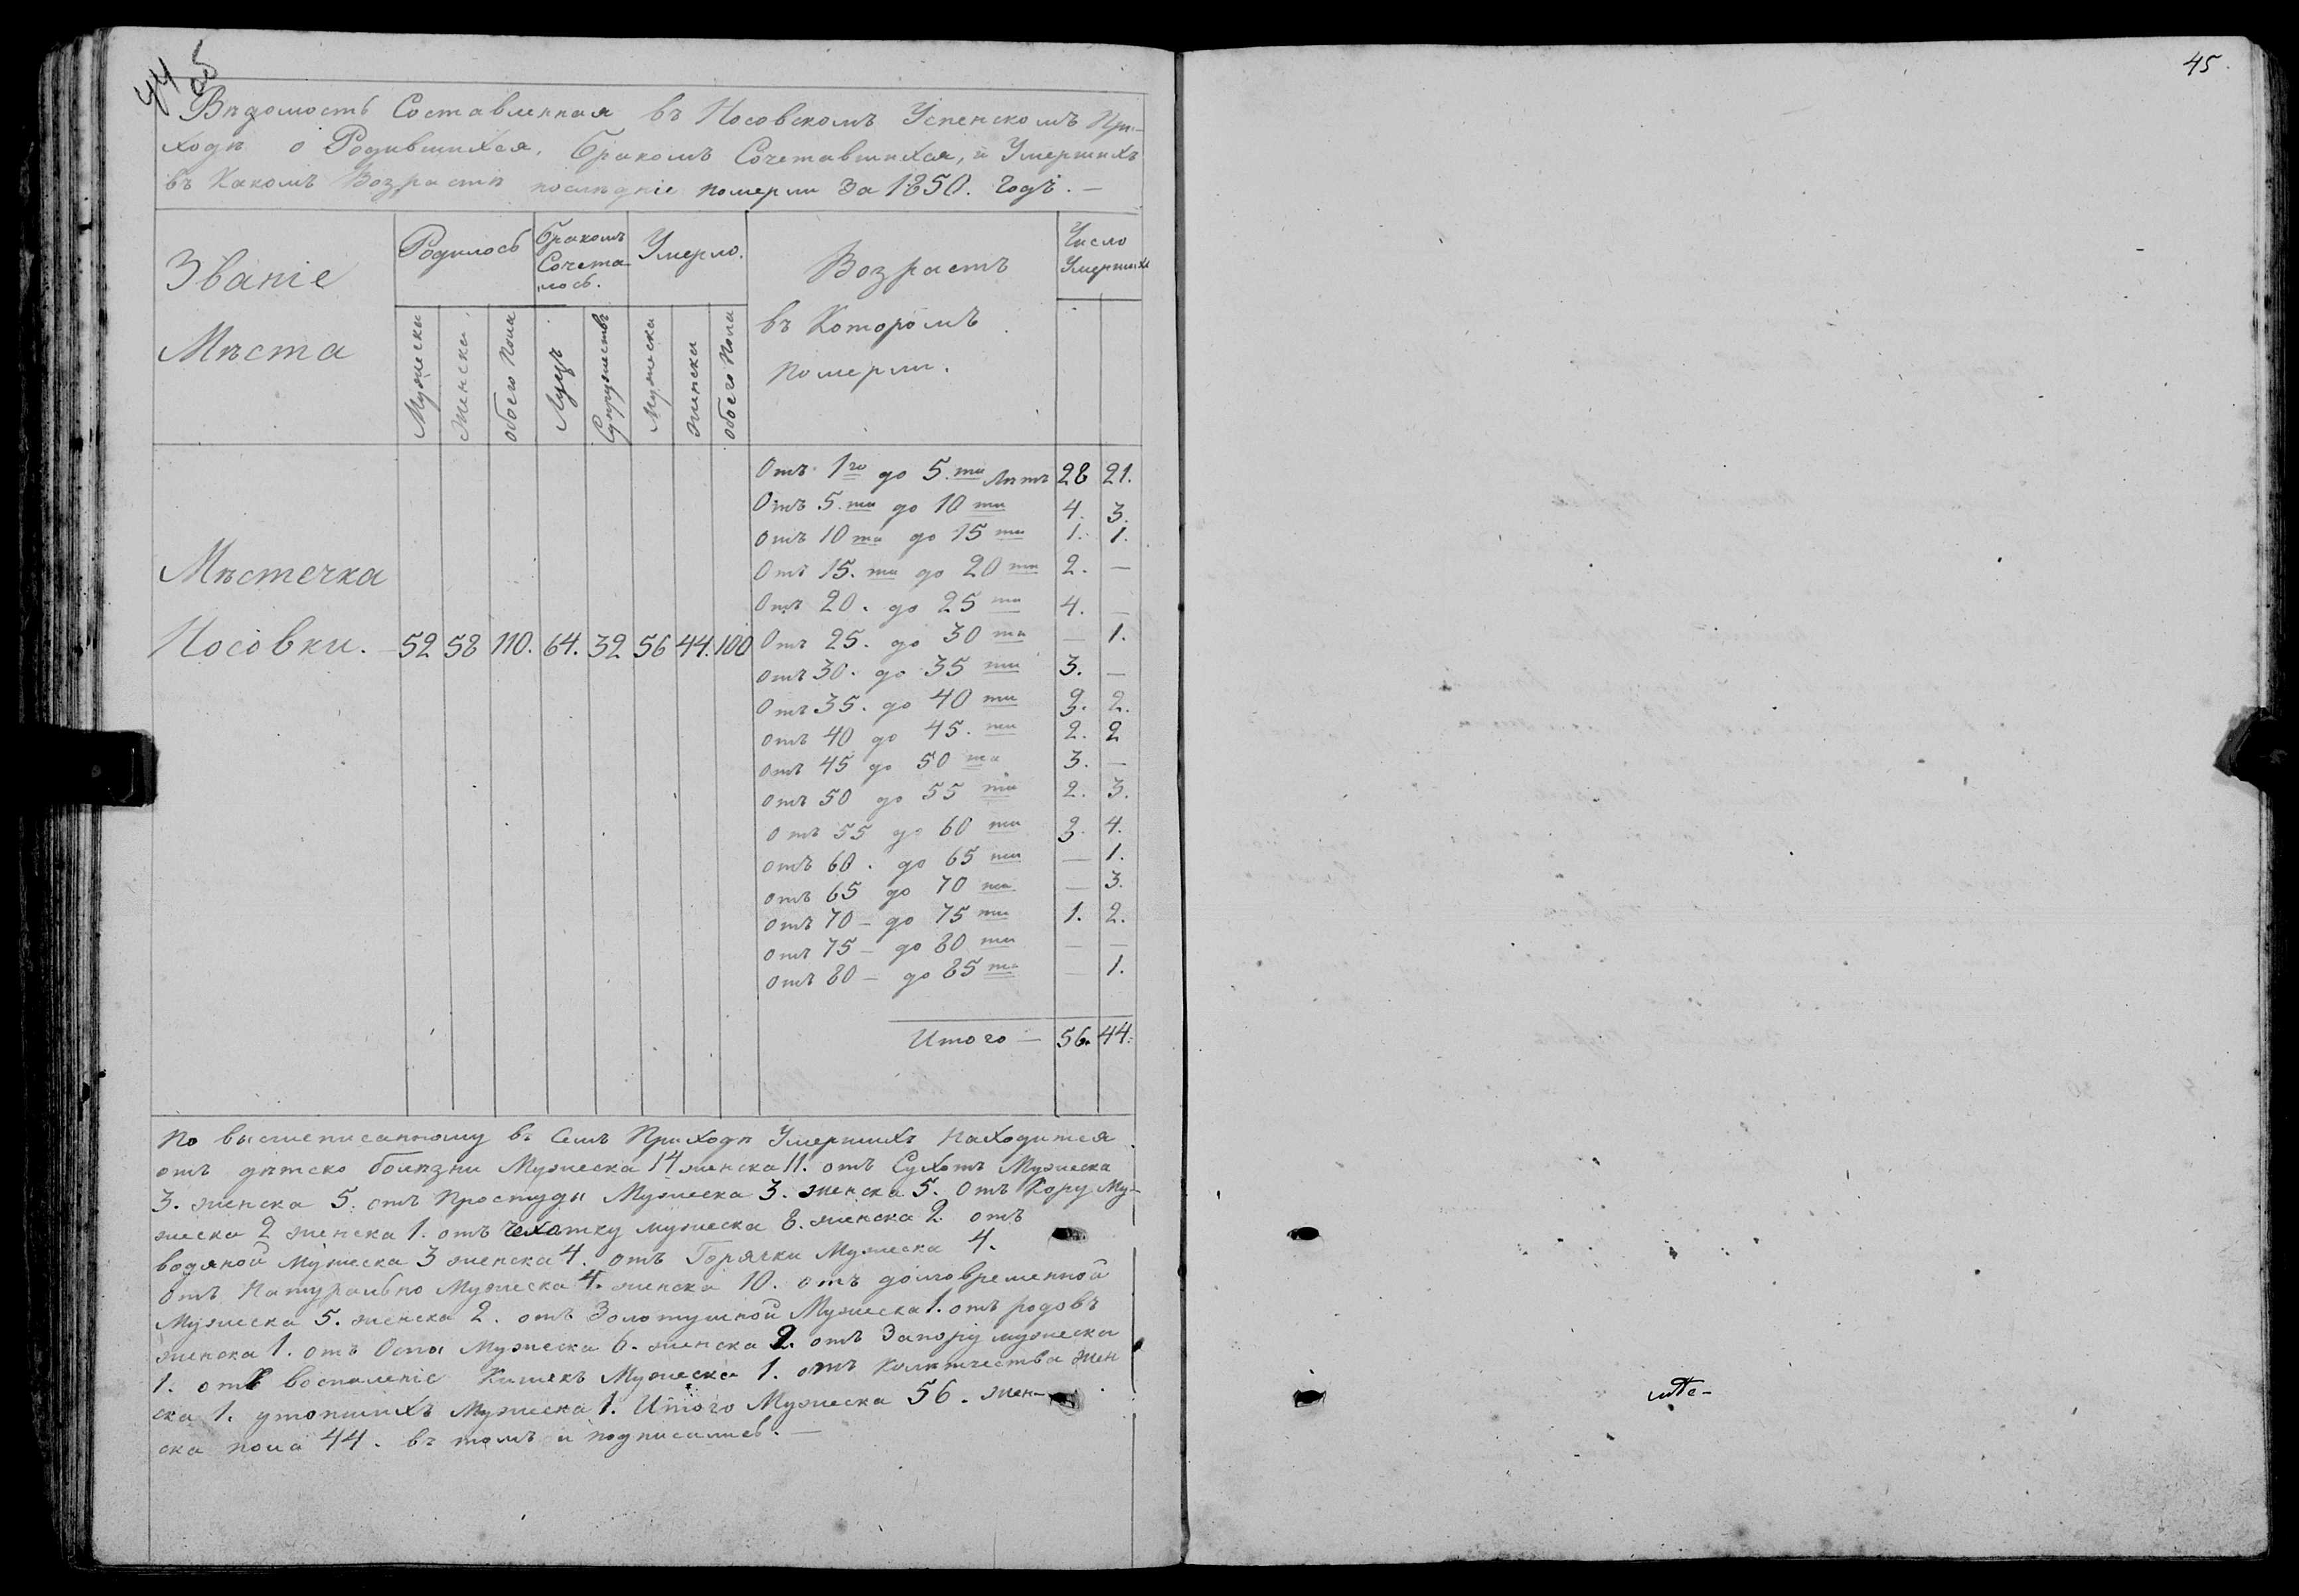 44 об
45.
Вѣдомость Составленная въ Носовскомъ Успенскомъ При-
ходѣ о Родившихся, бракомъ Сочетавшихся, и Умершихъ
въ Какомъ Возрастѣ послѣдніе померли За 1850. годъ. —
Званіе
Мѣста
Родилось
бракомъ
Сочета-
лось.
Умерло.
Возрастъ
въ Которомъ
померли.
Число
Умершихъ
Мужески
Женски
обоего Пола
Лицъ
Супружествъ
Мужеска
женски
обоего Пола
Мѣстечка
Носовки. 52 58 110. 64. 32 56 44. 100
Отъ 1го до 5.ти Лѣтъ 28 21.
Отъ 5.ти до 10 ти 4. 3.
отъ 10 ти до 15 ти 1. 1.
Отъ 15. ти до 20 ти 2. —
Отъ 20. до 25 ти 4. —
Отъ 25. до 30 ти — 1.
отъ 30. до 35 ти 3. —
Отъ 35. до 40 ти 3. 2.
отъ 40 до 45. ти 2. 2
отъ 45 до 50 ти 3. —
отъ 50 до 55 ти 2. 3.
отъ 55 до 60 ти 3. 4.
отъ 60. до 65 ти — 1.
отъ 65 до 70 ти — 3.
отъ 70 — до 75 ти 1. 2.
отъ 75 — до 80 ти — —
отъ 80 — до 85 ти — 1.
Итого — 56. 44.
По вышеписанному въ Семъ Приходѣ Умершихъ Находится
отъ дѣтско болѣзни Мужеска 14 женска 11. отъ Сухотъ Мужеска
3. женска 5. отъ простуды Мужеска 3. женска 5. Отъ Кору Му-
жеска 2 женска 1. отъ Чехотку мужеска 8. женска 2. отъ
водяной Мужеска 3 женска 4. отъ Горячки Мужеска 4.
отъ Натурально Мужеска 4. женска 10. отъ долговременной
Мужеска 5. женска 2. отъ Золотушной Мужеска 1. отъ родовъ
женска 1. отъ Оспы Мужеска 6. женска 2. отъ Запору мужеска
1. отъ воспаленіе Кишекъ Мужеска 1. отъ Калѣчества жен
ска 1. утопшихъ Мужеска 1. Итого Мужеска 56. жен-
ска пола 44. въ томъ и подписались. —